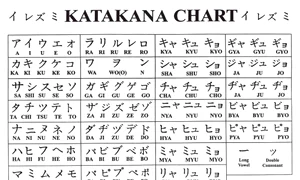 イ レ ズ ミ KATAKANA CHART イ レ ズ ミ
ア イ ウ エ オ ラ リ ル レ ロ キャ キュ キョ ギャ ギュ ギョ
A I U E O RA RI RU RE RO KYA KYU KYO GYA GYU GYO
カ キ ク ケ コ ワ ヲ ン シャ シュ ショ ジャ ジュ ジョ
KA KI KU KE KO WA WO(O) N SHA SHU SHO JA JU JO
サ シ ス セ ソ ガ ギ グ ゲ ゴ チャ チュ チョ
SA SHI SU SE SO GA GI GU GE GO CHA CHU CHO JA JU JO
タ チ ツ テ ト ザ ジ ズ ゼ ゾ ニャ ニュ ニョ ビャ ビュ ビョ
TA CHI TSU TE TO ZA JI ZU ZE ZO NYA NYU NYO BYA BYU BYO
ナ ニ ヌ ネ ノ ダ ヂ ヅ デ ド ヒャ ヒュ ヒョ ピャ ピュ ピョ
NA NI NU NE NO DA JI ZU DE DO HYA HYU HYO PYA PYU PYO
ハ ヒ フ ヘ ホ バ ビ ブ ベ ボ ミャ ミュ ミョ ー ッ
HA HI FU HE HO BA BI BU BE BO MYA MYU MYO Long Vowel Double Consonant
マ ミ ム メ モ パ ピ プ ペ ポ リャ リュ リョ